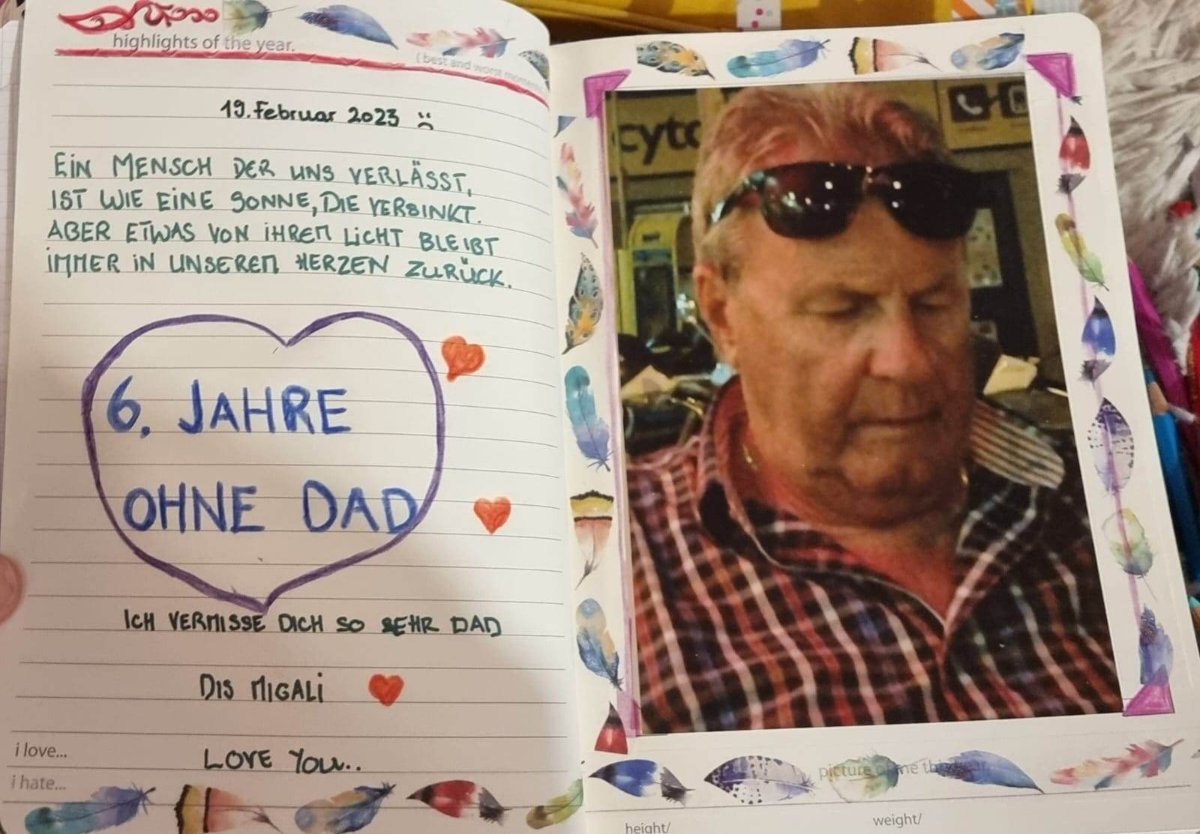 highlights of the year.
( best and worst
19. Februar 2023
EIN MENSCH DER UNS VERLÄSST,
IST WIE EINE SONNE, DIE VERSINKT.
ABER ETWAS VON IHREM LICHT BLEIBT
IMMER IN UNSEREM HERZEN ZURÜCK.
6. JAHRE
OHNE DAD
ICH VERMISSE DICH SO SEHR DAD
DIS MIGALI
i love...
LOVE YOU..
i hate...
cyto
picture of me this year.
height/
weight/